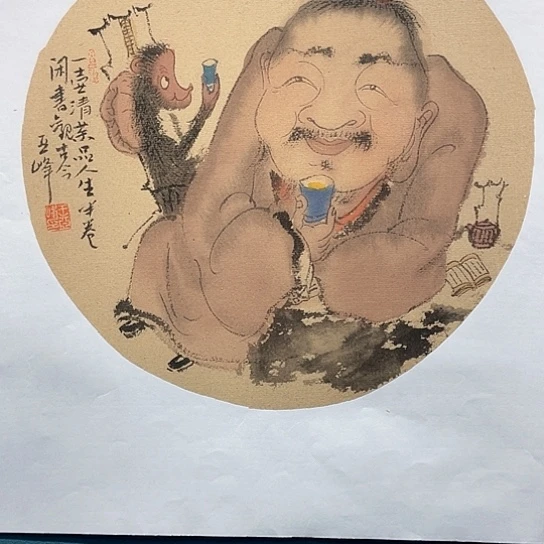 一壶清茶品人生半卷
闲书观古今
亚峰